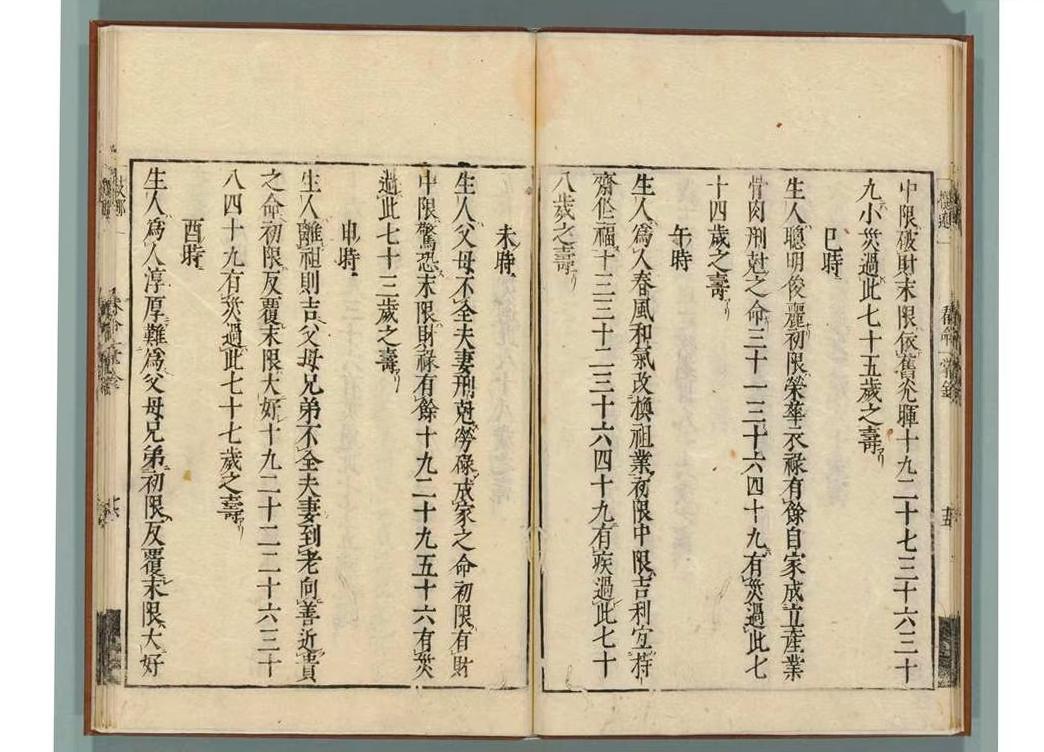 中限破財末限依舊光暉十九二十七三十六三十
九小災過此七十五歲之壽
巳時
生人聰明俊麗初限榮華衣祿有餘自家成立產業
骨肉刑尅之命三十一三十六四十九有災過此七
十四歲之壽
午時
生人為人春風和氣改換祖業初限中限吉利宜持
齋作福十三三十二三十六四十九有疾過此七十
八歲之壽
未時
生人父母不全夫妻刑尅勞碌成家之命初限有財
中限驚恐末限財祿有餘十九二十九五十六有災
過此七十三歲之壽
申時
生人離祖則吉父母兄弟不全夫妻到老向善近貴
之命初限反覆末限大好十九二十二二十六三十
八四十九有災過此七十七歲之壽
酉時
生人為人淳厚難為父母兄弟初限反覆末限大好